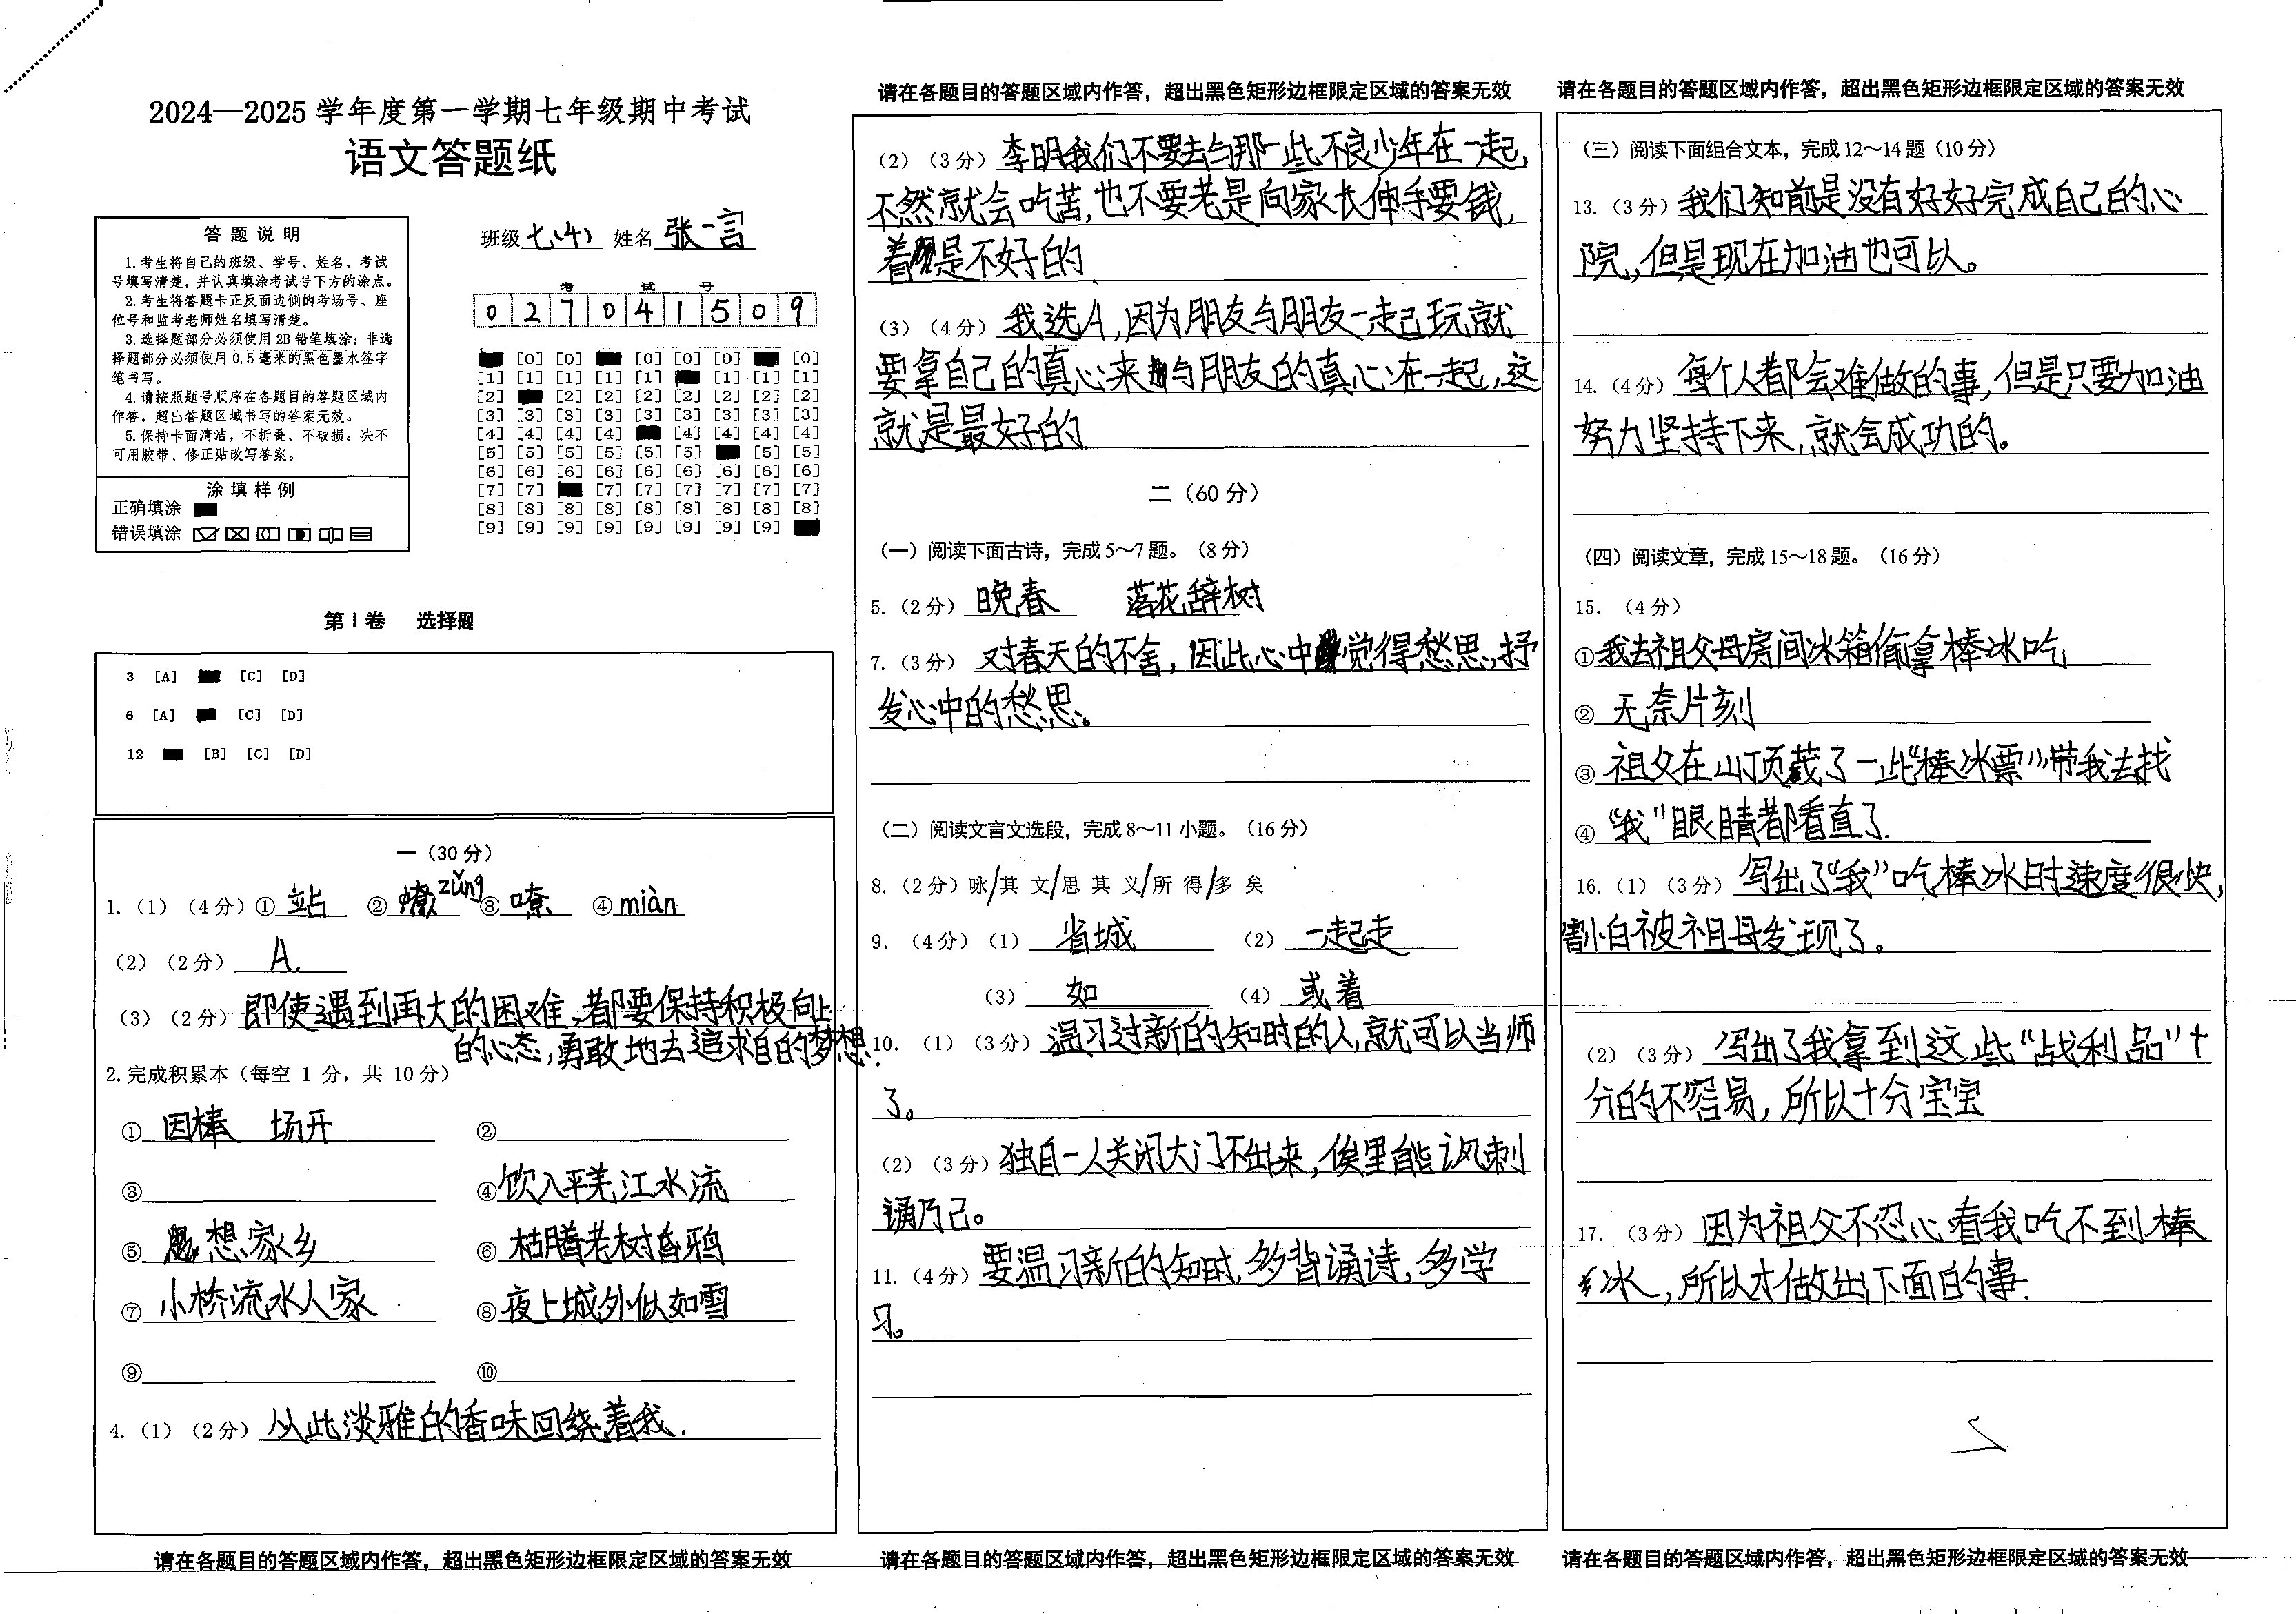 2024—2025 学年度第一学期七年级期中考试
语文答题纸
答 题 说 明
1.考生将自己的班级、学号、姓名、考试
号填写清楚，并认真填涂考试号下方的涂点。
2.考生将答题卡正反面边侧的考场号、座
位号和监考老师姓名填写清楚。
3.选择题部分必须使用 2B 铅笔填涂；非选
择题部分必须使用 0.5 毫米的黑色墨水签字
笔书写。
4.请按照题号顺序在各题目的答题区域内
作答，超出答题区域书写的答案无效。
5.保持卡面清洁，不折叠、不破损。决不
可用胶带、修正贴改写答案。
涂 填 样 例
正确填涂
错误填涂
班级 七(4) 姓名 张一言
考 试 号
0 2 7 0 4 1 5 0 9
[0] [0] [0] [0] [0] [0]
[1] [1] [1] [1] [1] [1] [1] [1]
[2] [2] [2] [2] [2] [2] [2] [2]
[3] [3] [3] [3] [3] [3] [3] [3] [3]
[4] [4] [4] [4] [4] [4] [4] [4]
[5] [5] [5] [5] [5] [5] [5] [5]
[6] [6] [6] [6] [6] [6] [6] [6] [6]
[7] [7] [7] [7] [7] [7] [7] [7]
[8] [8] [8] [8] [8] [8] [8] [8] [8]
[9] [9] [9] [9] [9] [9] [9] [9]
第 Ⅰ 卷 选择题
3 [A] [C] [D]
6 [A] [C] [D]
12 [B] [C] [D]
一（30 分）
1.（1）（4 分）① 站 ② zǔng ③ 嘹 ④ miàn
（2）（2 分） A.
（3）（2 分） 即使遇到再大的困难,都要保持积极向上
的心态,勇敢地去追求自的梦想.
2.完成积累本（每空 1 分，共 10 分）
① 因棒 场开 ②
③ ④ 饮入平羌江水流
⑤ 思想家乡 ⑥ 枯腾老树昏鸦
⑦ 小桥流水人家 ⑧ 夜上城外似如雪
⑨ ⑩
4.（1）（2 分） 从此淡雅的香味回绕着我.
请在各题目的答题区域内作答，超出黑色矩形边框限定区域的答案无效
请在各题目的答题区域内作答，超出黑色矩形边框限定区域的答案无效
（2）（3 分） 李明我们不要去与那一些不良少年在一起,
不然就会吃苦,也不要老是向家长伸手要钱,
着是不好的
（3）（4 分） 我选A,因为朋友与朋友一起玩就
要拿自己的真心来与朋友的真心在一起,这
就是最好的
二（60 分）
（一）阅读下面古诗，完成 5～7 题。（8 分）
5.（2 分） 晚春 落花辞树
7.（3 分） 对春天的不舍，因此心中觉得愁思,抒
发心中的愁思。
（二）阅读文言文选段，完成 8～11 小题。（16 分）
8.（2 分）咏/其 文/思 其 义/所 得/多 矣
9.（4 分）（1） 省城 （2） 一起走
（3） 如 （4） 或着
10.（1）（3 分） 温习过新的知时的人,就可以当师
了。
（2）（3 分） 独自一人关闭大门不出来,俟里能讽刺
诵乃己。
11.（4 分） 要温习新的知时,多背诵诗,多学
习。
请在各题目的答题区域内作答，超出黑色矩形边框限定区域的答案无效
请在各题目的答题区域内作答，超出黑色矩形边框限定区域的答案无效
（三）阅读下面组合文本，完成 12～14 题（10 分）
13.（3 分） 我们知前是没有好好完成自己的心
院,但是现在加油也可以。
14.（4 分） 每个人都会难做的事,但是只要加油
努力坚持下来,就会成功的。
（四）阅读文章，完成 15～18 题。（16 分）
15.（4 分）
① 我去祖父母房间冰箱偷拿棒冰吃
② 无奈片刻
③ 祖父在山顶藏了一些“棒冰票”带我去找
④ “我”眼睛都看直了.
16.（1）（3 分） 写出了“我”吃棒冰时速度很快,
害怕被祖母发现了。
（2）（3 分） 写出了我拿到这些“战利品”十
分的不容易,所以十分宝宝
17.（3 分） 因为祖父不忍心看我吃不到棒
冰,所以才做出下面的事.
请在各题目的答题区域内作答，超出黑色矩形边框限定区域的答案无效